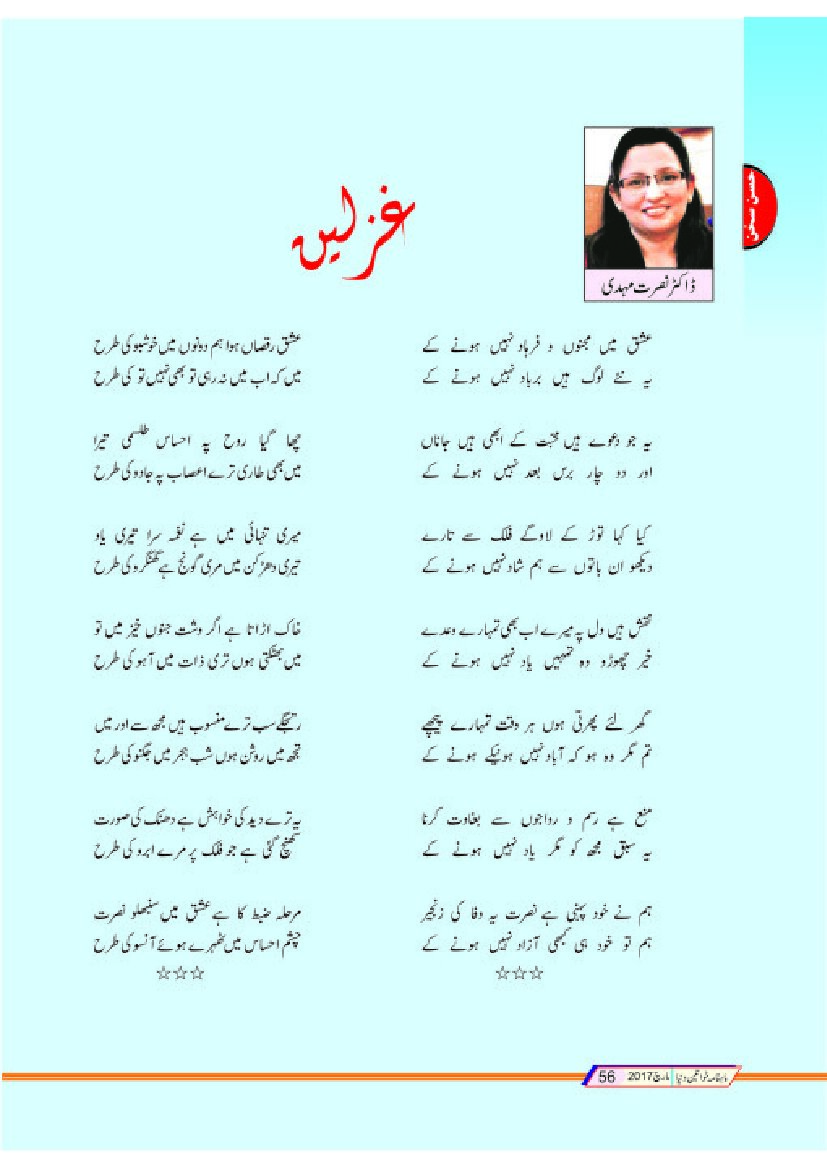 حسن سخن
غزلیں
ڈاکٹر نصرت مہدی
عشق میں مجنوں و فرہاد نہیں ہونے کے
یہ نئے لوگ ہیں برباد نہیں ہونے کے
یہ جو دعوے ہیں محبت کے ابھی ہیں جاناں
اور دو چار برس بعد نہیں ہونے کے
کیا کہا توڑ کے لاوگے فلک سے تارے
دیکھو ان باتوں سے ہم شاد نہیں ہونے کے
نقش ہیں دل پہ میرے اب بھی تمہارے وعدے
خیر چھوڑو وہ تمہیں یاد نہیں ہونے کے
گھر لئے پھرتی ہوں ہر وقت تمہارے پیچھے
تم مگر وہ ہو کہ آباد نہیں ہونیکے ہونے کے
منع ہے رسم و رواجوں سے بغاوت کرنا
یہ سبق مجھ کو مگر یاد نہیں ہونے کے
ہم نے خود پہنی ہے نصرت یہ وفا کی زنجیر
ہم تو خود ہی کبھی آزاد نہیں ہونے کے
☆☆☆
عشق رقصاں ہوا ہم دونوں میں خوشبو کی طرح
میں کہ اب میں نہ رہی تو بھی نہیں تو کی طرح
چھا گیا روح پہ احساس طلسمی تیرا
میں بھی طاری ترے اعصاب پہ جادو کی طرح
میری تنہائی میں ہے نغمہ سرا تیری یاد
تیری دھڑکن میں مری گونج ہے گھنگرو کی طرح
خاک اڑاتا ہے اگر دشت جنوں خیز میں تو
میں بھٹکتی ہوں تری ذات میں آہو کی طرح
رتجگے سب ترے منسوب ہیں مجھ سے اور میں
تجھ میں روشن ہوں شب ہجر میں جگنو کی طرح
یہ ترے دید کی خواہش ہے دھنک کی صورت
کھنچ گئی ہے جو فلک پر مرے ابرو کی طرح
مرحلہ ضبط کا ہے عشق میں سنبھلو نصرت
چشم احساس میں ٹھہرے ہوئے آنسو کی طرح
☆☆☆
ماہنامہ خواتین دنیا | مارچ 2017 56